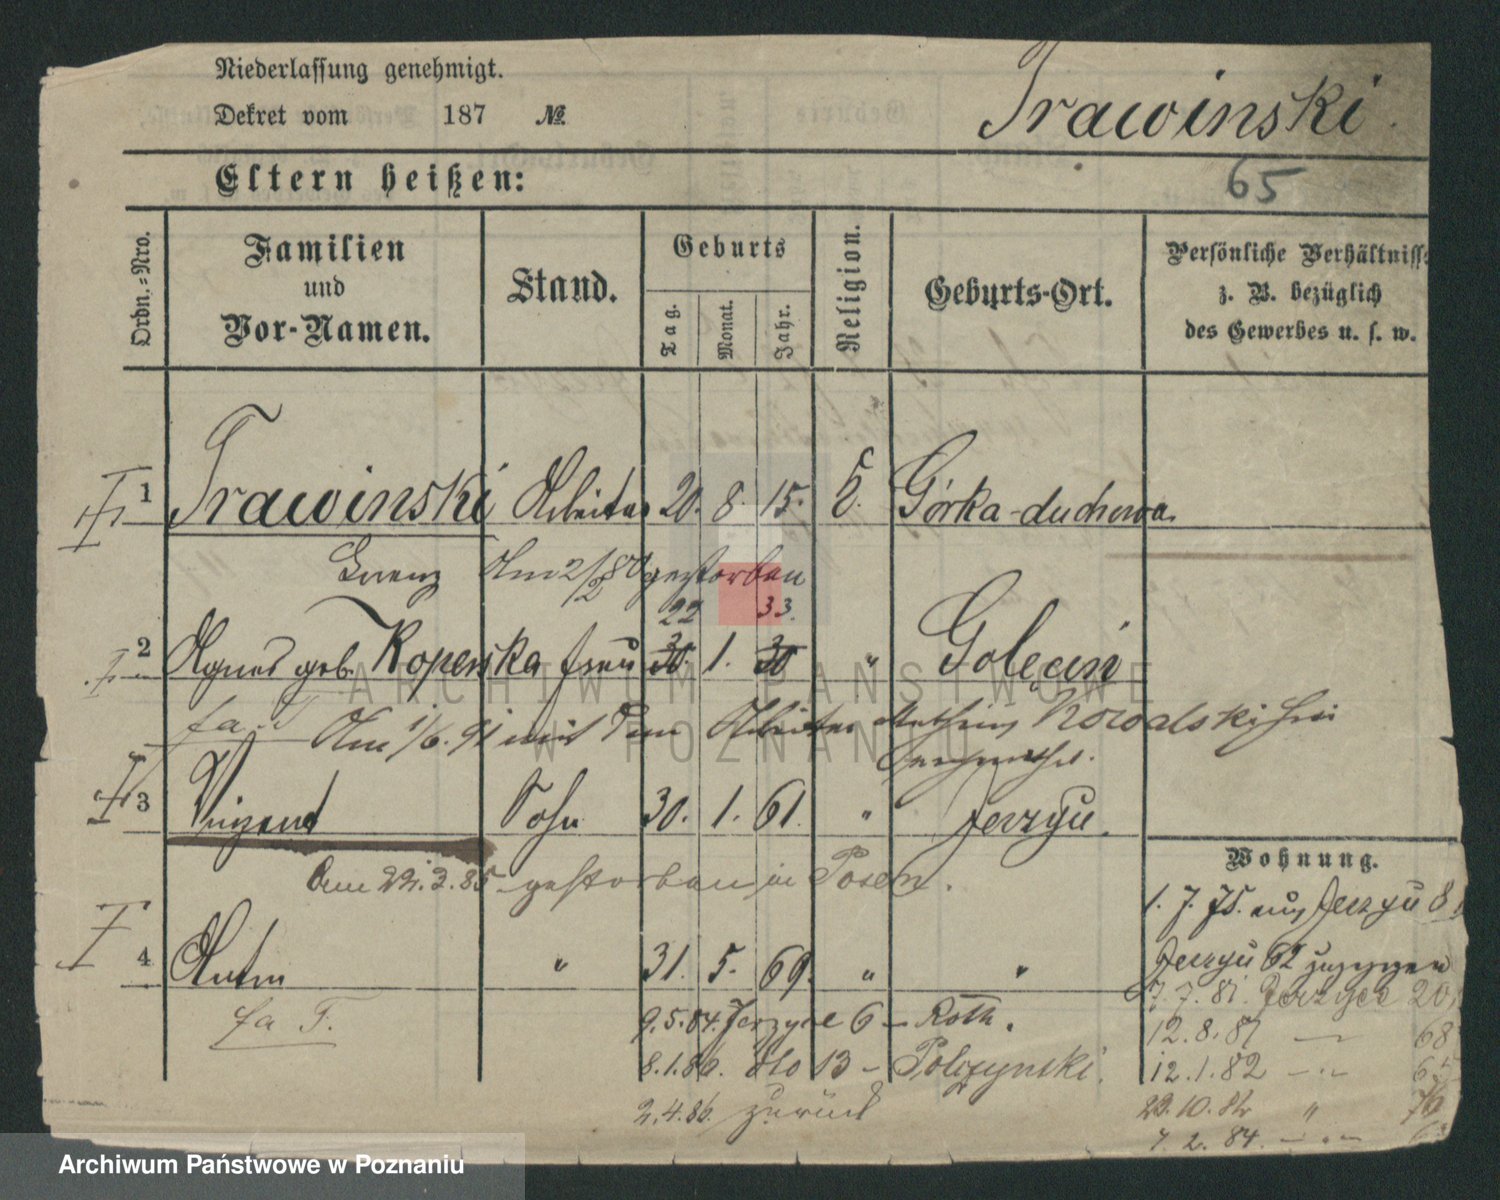 Niederlassung genehmigt.
Dekret vom 187 №
Trawinski
65
Eltern heißen:
Ordn.-Nro.
Familien und Vor-Namen.
Stand.
Geburts
Tag. Monat. Jahr.
Religion.
Geburts-Ort.
Persönliche Verhältnisse
z. B. bezüglich
des Gewerbes u. s. w.
1 Trawinski Arbeiter 20. 8. 15. Górka-duchowa
Am 2/2 80 gestorben
22 33.
2 Agnes geb. Koperska Frau 30 1. 30 " Golęcin
Am 1/6. 91 mit dem Arbeiter Nowalski
3 Vinzent Sohn 30. 1. 61. " Jerzyu.
Am 22. 3. 85 gestorben in Posen.
4 Anton " 31. 5. 69. " "
fa T.
9. 5. 84. Jerzyce 6 – Roth.
8. 1. 86. dto 13 – Polczynski.
2. 4. 86. zurück
Wohnung.
1. 7. 75. aus Jerzyu 8
Jerzyu 62 zugezogen
7. 7. 81. Jerzyce 20
12. 8. 81 — 68
12. 1. 82 — " —
22. 10. 82 "
7. 2. 84. — " —
ARCHIWUM PAŃSTWOWE
W POZNANIU
Archiwum Państwowe w Poznaniu